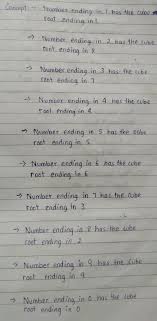 Concept :- Number ending in 1 has the cube
root ending in 1
→ Number ending in 2 has the cube
root ending in 8
→ Number ending in 3 has the cube
root ending in 7
→ Number ending in 4 has the cube
root ending in 4
→ Number ending in 5 has the cube
root ending in 5
→ Number ending in 6 has the cube
root ending in 6
→ Number ending in 7 has the cube
root ending in 3
→ Number ending in 8 has the cube
root ending in 2
→ Number ending in 9 has the cube
root ending in 9
→ Number ending in 0 has the cube
root ending in 0